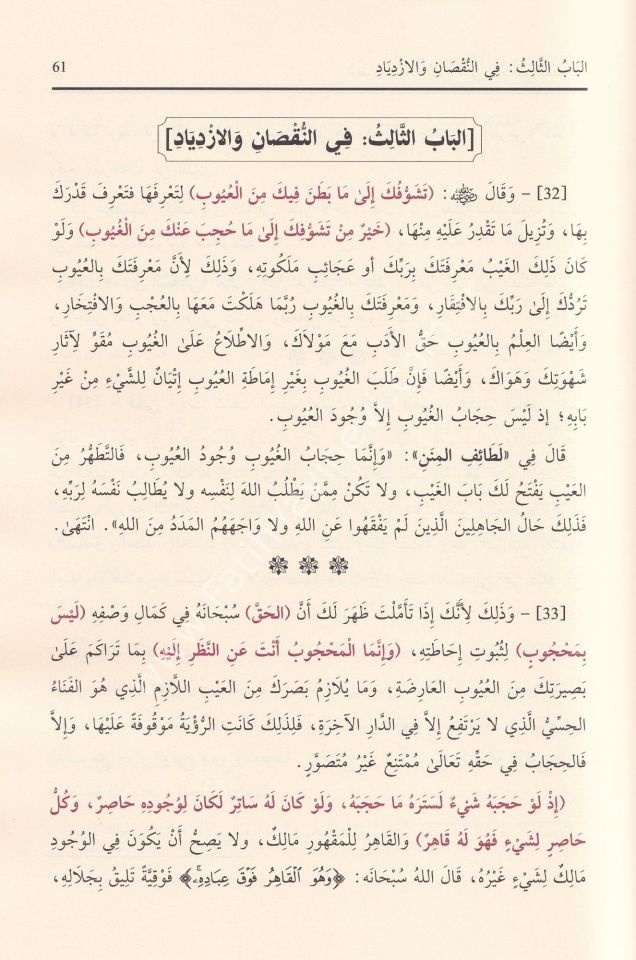 البَابُ الثَّالِثُ: فِي النُّقْصَانِ وَالازْدِيَادِ 61
[البَابُ الثَّالِثُ: فِي النُّقْصَانِ وَالازْدِيَادِ]
[32] – وَقَالَ ﵁: (تَشَوُّفُكَ إِلَىٰ مَا بَطَنَ فِيكَ مِنَ الْعُيُوبِ) لِتَعْرِفَهَا فَتَعْرِفَ قَدْرَكَ
بِهَا، وَتُزِيلَ مَا تَقْدِرُ عَلَيْهِ مِنْهَا، (خَيْرٌ مِنْ تَشَوُّفِكَ إِلَىٰ مَا حُجِبَ عَنْكَ مِنَ الْغُيُوبِ) وَلَوْ
كَانَ ذَلِكَ الغَيْبُ مَعْرِفَتَكَ بِرَبِّكَ أو عَجَائِبِ مَلَكُوتِهِ، وَذَلِكَ لِأَنَّ مَعْرِفَتَكَ بِالعُيُوبِ
تَرُدُّكَ إِلَىٰ رَبِّكَ بِالافْتِقَارِ، وَمَعْرِفَتَكَ بِالغُيُوبِ رُبَّمَا هَلَكْتَ مَعَهَا بِالعُجْبِ وَالافْتِخَارِ،
وَأَيْضًا العِلْمُ بِالعُيُوبِ حَقُّ الأَدَبِ مَعَ مَوْلَاكَ، وَالاطِّلَاعُ عَلَىٰ الغُيُوبِ مُقَوٍّ لِآثَارِ
شَهْوَتِكَ وَهَوَاكَ، وَأَيْضًا فَإِنَّ طَلَبَ الغُيُوبِ بِغَيْرِ إِمَاطَةِ العُيُوبِ إِتْيَانٌ لِلشَّيْءِ مِنْ غَيْرِ
بَابِهِ؛ إذ لَيْسَ حِجَابُ الغُيُوبِ إِلاَّ وُجُودَ العُيُوبِ.
قَالَ فِي «لَطَائِفِ المِنَنِ»: «وَإِنَّمَا حِجَابُ الغُيُوبِ وُجُودُ العُيُوبِ، فَالتَّطَهُّرُ مِنَ
العَيْبِ يَفْتَحُ لَكَ بَابَ الغَيْبِ، ولا تَكُنْ مِمَّن يَطْلُبُ اللهَ لِنَفْسِهِ ولا يُطَالِبُ نَفْسَهُ لِرَبِّهِ،
فَذَلِكَ حَالُ الجَاهِلِينَ الَّذِينَ لَمْ يَفْقَهُوا عَنِ اللهِ ولا وَاجَهَهُمُ المَدَدُ مِنَ اللهِ». انْتَهَىٰ.
[33] – وَذَلِكَ لِأَنَّكَ إِذَا تَأَمَّلْتَ ظَهَرَ لَكَ أَنَّ (الحَقَّ) سُبْحَانَهُ فِي كَمَالِ وَصْفِهِ (لَيْسَ
بِمَحْجُوبٍ) لِثُبُوتِ إِحَاطَتِهِ، (وَإِنَّمَا الْمَحْجُوبُ أَنْتَ عَنِ النَّظَرِ إِلَيْهِ) بِمَا تَرَاكَمَ عَلَىٰ
بَصِيرَتِكَ مِنَ العُيُوبِ العَارِضَةِ، وَمَا يُلَازِمُ بَصَرَكَ مِنَ العَيْبِ اللَّازِمِ الَّذِي هُوَ الفَنَاءُ
الحِسِّيُّ الَّذِي لا يَرْتَفِعُ إِلاَّ فِي الدَّارِ الآخِرَةِ، فَلِذَلِكَ كَانَتِ الرُّؤْيَةُ مَوْقُوفَةً عَلَيْهَا، وَإِلاَّ
فَالحِجَابُ فِي حَقِّهِ تَعَالَىٰ مُمْتَنِعٌ غَيْرُ مُتَصَوَّرٍ.
(إِذْ لَوْ حَجَبَهُ شَيْءٌ لَسَتَرَهُ مَا حَجَبَهُ، وَلَوْ كَانَ لَهُ سَاتِرٌ لَكَانَ لِوُجُودِهِ حَاصِرٌ، وَكُلُّ
حَاصِرٍ لِشَيْءٍ فَهُوَ لَهُ قَاهِرٌ) وَالقَاهِرُ لِلْمَقْهُورِ مَالِكٌ، ولا يَصِحُّ أَنْ يَكُونَ فِي الوُجُودِ
مَالِكٌ لِشَيْءٍ غَيْرُهُ، قَالَ اللهُ سُبْحَانَه: ﴿وَهُوَ ٱلْقَاهِرُ فَوْقَ عِبَادِهِۦۚ﴾ فَوْقِيَّةً تَلِيقُ بِجَلَالِهِ،